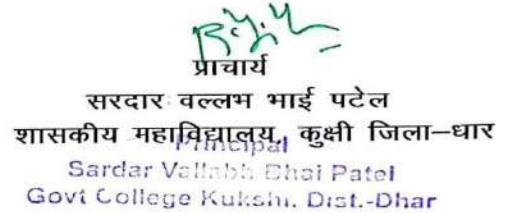 प्राचार्य
सरदार वल्लभ भाई पटेल
शासकीय महाविद्यालय, कुक्षी जिला–धार
Principal
Sardar Vallabh Bhai Patel
Govt College Kukshi, Dist.-Dhar